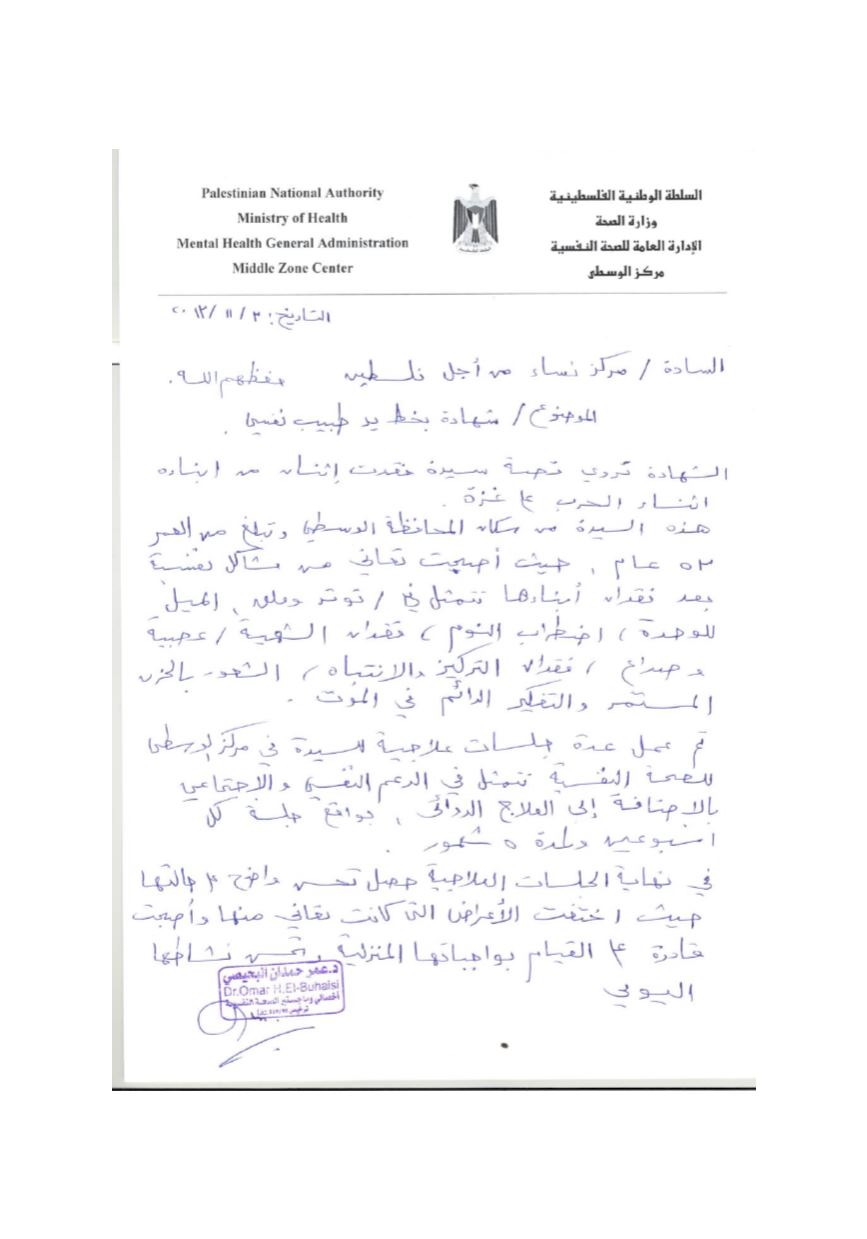 Palestinian National Authority
Ministry of Health
Mental Health General Administration
Middle Zone Center
السلطة الوطنية الفلسطينية
وزارة الصحة
الإدارة العامة للصحة النفسية
مركز الوسطى
التاريخ: ٣ / ١١ / ٢٠١٣
السادة / مركز نساء من أجل فلسطين حفظهم الله.
الموضوع / شهادة بخط يد طبيب نفسي.
الشهادة تروي قصة سيدة فقدت إثنان من ابناءه
اثناء الحرب ع غزة.
هذه السيدة من سكان المحافظة الوسطى وتبلغ من العمر
٥٣ عام، حيث أصبحت تعاني من مشاكل نفسية
بعد فقدان أبناءها تتمثل في / توتر وقلق، الميل
للوحدة / اضطراب النوم / فقدان الشهية / عصبية
وصداع / فقدان التركيز والانتباه / الشعور بالحزن
المستمر والتفكير الدائم في الموت.
تم عمل عدة جلسات علاجية للسيدة في مركز الوسطى
للصحة النفسية تتمثل في الدعم النفسي والاجتماعي
بالاضافة إلى العلاج الدوائي، بواقع جلسة كل
اسبوعين ولمدة ٥ شهور.
في نهاية الجلسات العلاجية حصل تحسن واضح ع حالتها
حيث اختفت الأعراض التي كانت تعاني منها وأصبحت
قادرة ع القيام بواجباتها المنزلية وتحسن نشاطها
اليومي
د.عمر حمدان البحيصي
Dr.Omar H.El-Buhaisi
أخصائي وماجستير الصحة النفسية